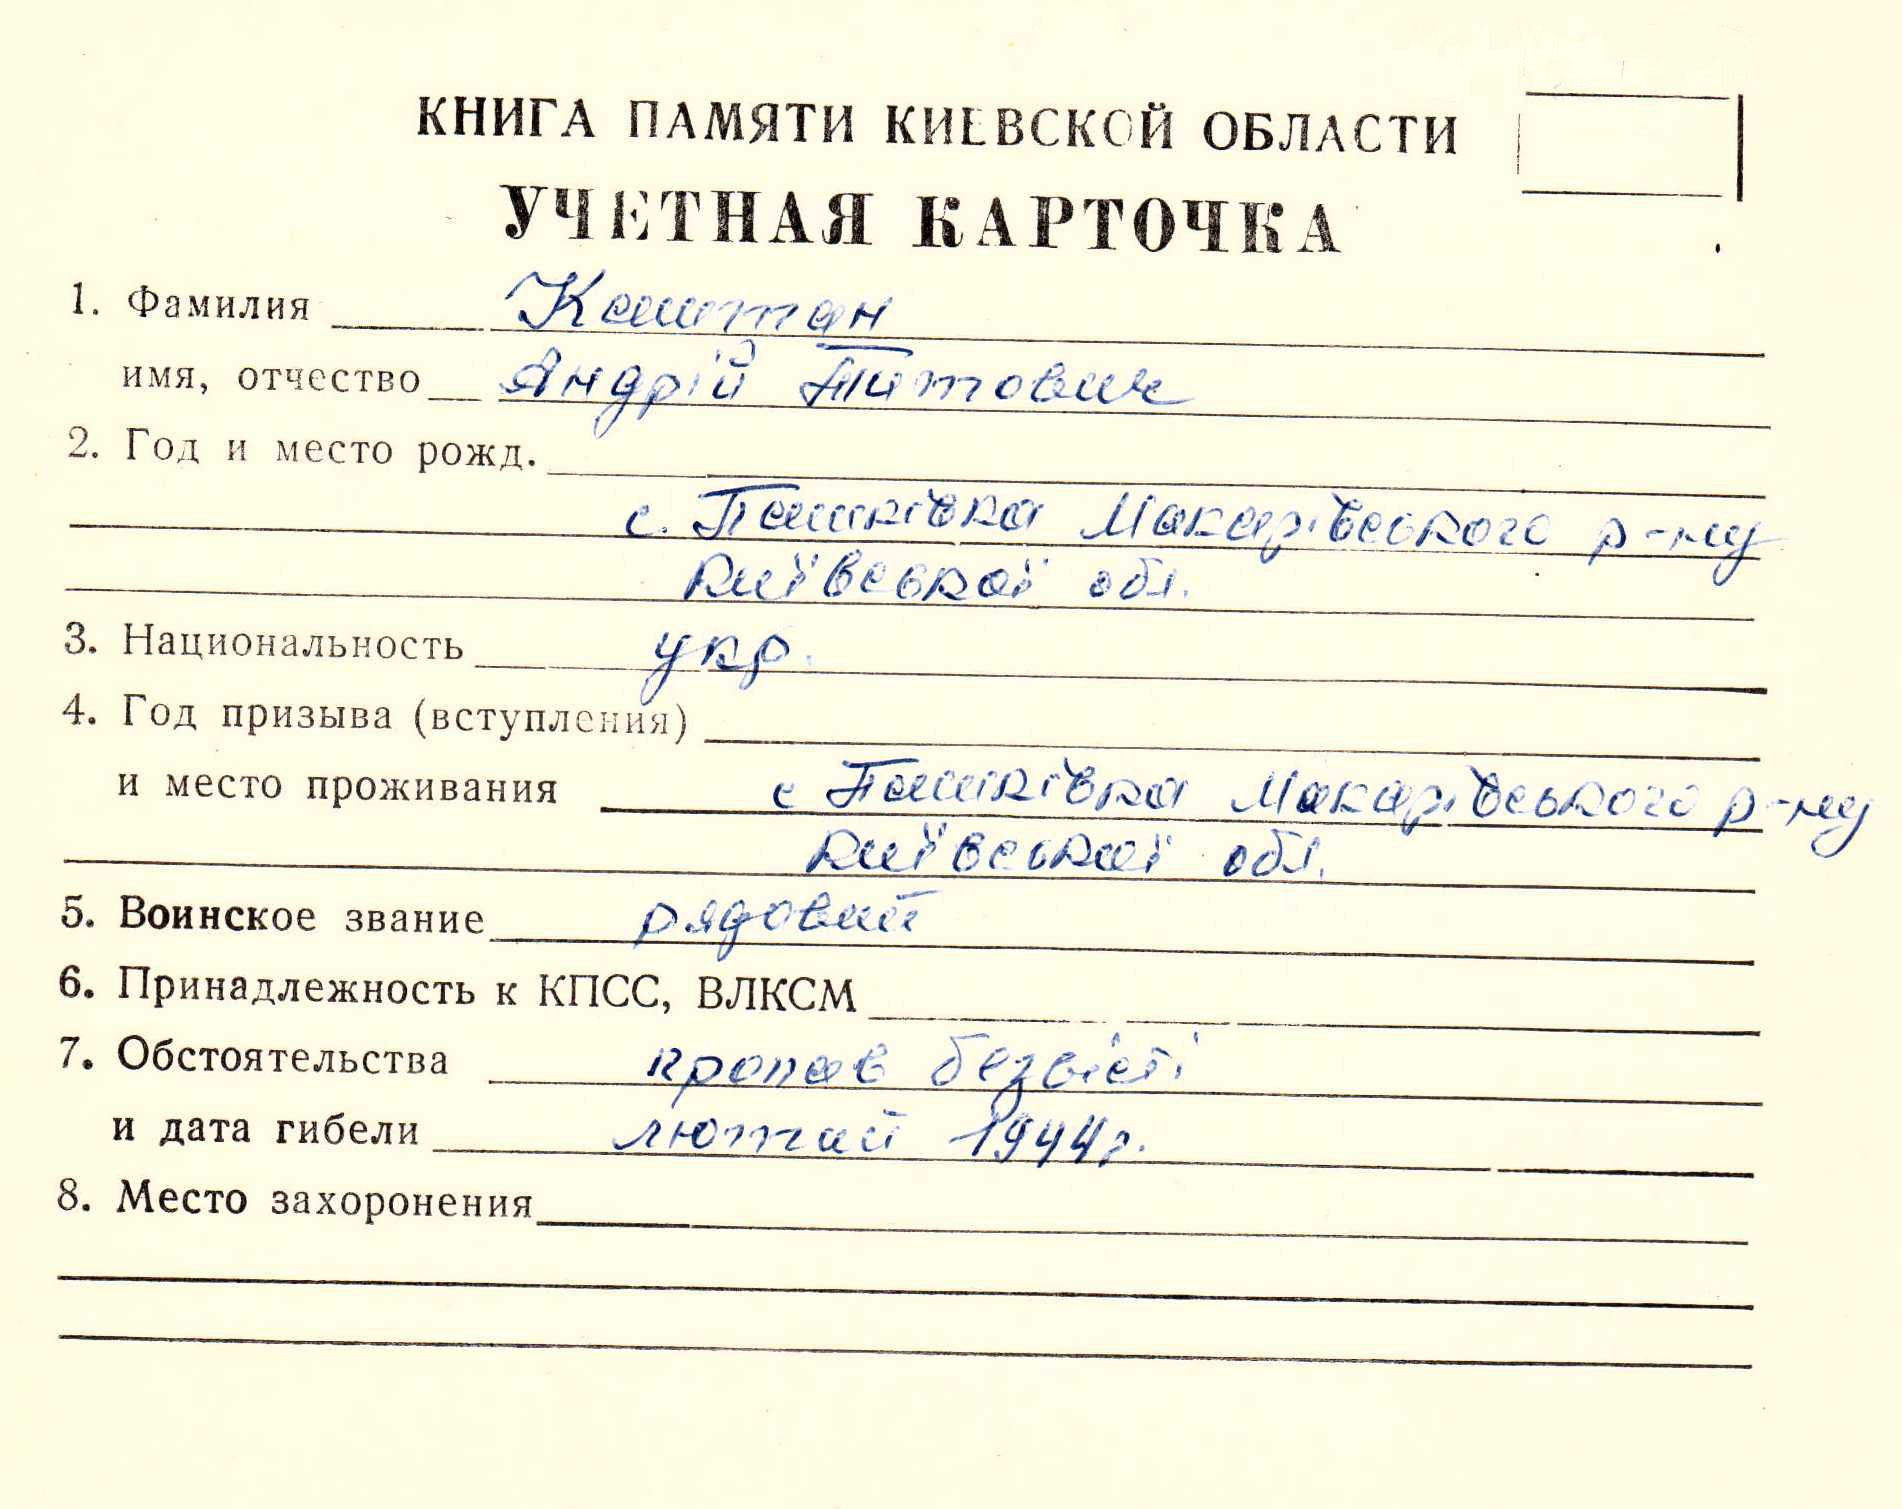 КНИГА ПАМЯТИ КИЕВСКОЙ ОБЛАСТИ
УЧЕТНАЯ КАРТОЧКА
1. Фамилия Каштан
имя, отчество Андрій Титович
2. Год и место рожд.
с. Пашківка Макарівського р-ну
Київської обл.
3. Национальность укр.
4. Год призыва (вступления)
и место проживания с Пашківка Макарівського р-ну
Київської обл.
5. Воинское звание рядовий
6. Принадлежность к КПСС, ВЛКСМ
7. Обстоятельства пропав безвісті
и дата гибели лютий 1944г.
8. Место захоронения